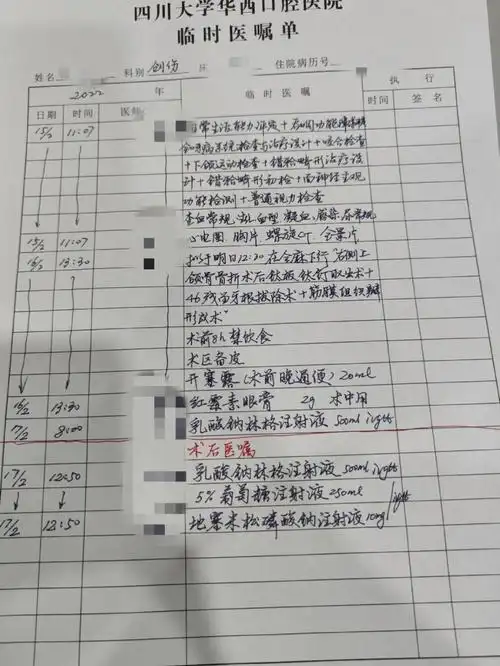 四川大学华西口腔医院
临时医嘱单
姓名 科别 创伤 床 住院病历号
2022 年 医师 临时医嘱 执行
日期 时间 时间 签名
15/2 11:07 日常生活能力评定+吞咽功能障碍
牙周病系统检查与治疗设计+咬合检查
+下颌运动检查+错𬌗畸形治疗设
计+错𬌗畸形初检+面神经主观
功能检测+普通视力检查
查血常规、血型、凝血、尿常规
15/2 11:07 心电图、胸片、螺旋CT、全景片
16/2 13:30 拟于明日12:30在全麻下行"右侧上
颌骨骨折术后钛板钛钉取出术+
46残留牙根拔除术+筋膜组织瓣
形成术"
术前8h禁饮食
术区备皮
开塞露(术前晚通便)20ml
16/2 13:30 红霉素眼膏 2g 术中用
17/2 8:00 乳酸钠林格注射液 500ml ivgtt
术后医嘱
17/2 12:50 乳酸钠林格注射液 500ml ivgtt
5%葡萄糖注射液 250ml
17/2 12:50 地塞米松磷酸钠注射液 10mg ivgtt